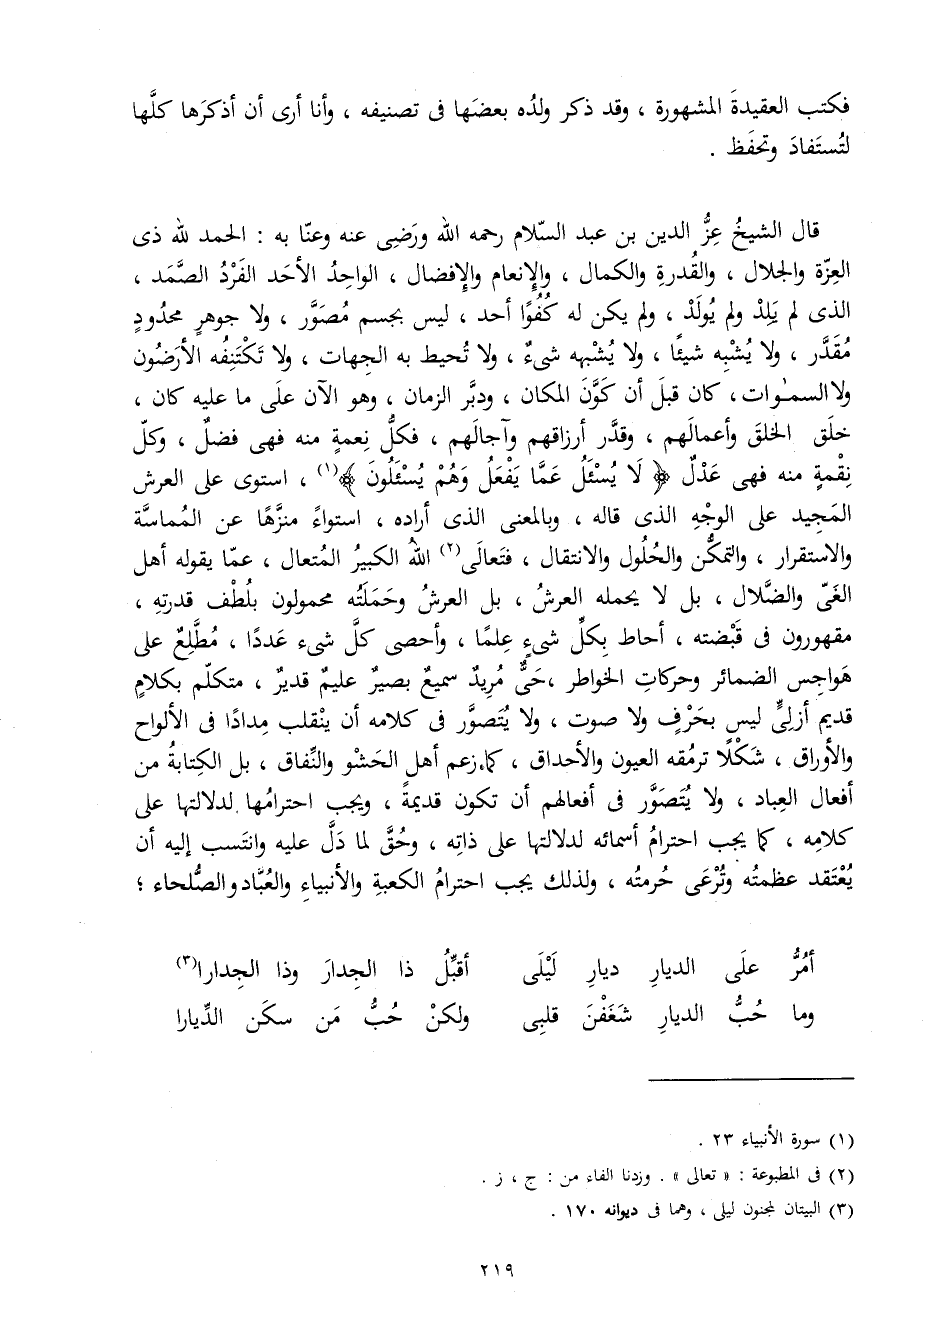 فكتب العقيدةَ المشهورة ، وقد ذكر ولدُه بعضَها فى تصنيفه ، وأنا أرى أن أذكرَها كلَّها
لتُستَفادَ وتحفَظ .
قال الشيخُ عِزُّ الدين بن عبد السّلام رحمه الله ورَضِى عنه وعنّا به : الحمد لله ذى
العِزّة والجلال ، والقُدرةِ والكمال ، والإنعام والإفضال ، الواحِدُ الأحَد الفَرْدُ الصَّمَد ،
الذى لم يَلِدْ ولم يُولَدْ ، ولم يكن له كُفُوًا أحد ، ليس بجسم مُصَوَّر ، ولا جوهرٍ محدُودٍ
مُقَدَّر ، ولا يُشْبِه شيئًا ، ولا يُشْبهه شىءٌ ، ولا تُحيط به الجهات ، ولا تَكْتَنِفُه الأرَضُون
ولا السمٰوات ، كان قبلَ أن كَوَّنَ المكان ، ودبَّر الزمان ، وهو الآن علَى ما عليه كان ،
خلَق الخلقَ وأعمالَهم ، وقدَّر أرزاقهم وآجالَهم ، فكلُّ نِعمةٍ منه فهى فضلٌ ، وكلّ
نِقْمةٍ منه فهى عَدْلٌ ﴿ لَا يُسْئَلُ عَمَّا يَفْعَلُ وَهُمْ يُسْئَلُونَ ﴾(١) ، استوى على العرش
المَجِيد على الوجْهِ الذى قاله ، وبالمعنى الذى أراده ، استواءً منزَّهًا عن المُماسَّة
والاستقرار ، والتمكُّن والحُلُول والانتقال ، فتَعالَى(٢) اللهُ الكبيرُ المُتعال ، عمّا يقوله أهل
الغَىّ والضَّلال ، بل لا يحمله العرشُ ، بل العرشُ وحَمَلَتُه محمولون بلُطْف قدرتِه ،
مقهورون فى قَبْضته ، أحاط بكلِّ شىءٍ عِلمًا ، وأحصى كلَّ شىء عَددًا ، مُطَّلِعٌ على
هَواجِس الضمائر وحركاتِ الخواطر ، حَىٌّ مُرِيدٌ سميعٌ بصيرٌ عليمٌ قديرٌ ، متكلّم بكلامٍ
قديم أزلِىٍّ ليس بحَرْفٍ ولا صوت ، ولا يُتصوَّر فى كلامه أن ينْقلب مِدادًا فى الألواح
والأوراق ، شَكْلًا ترمُقه العيون والأحداق ، كما زعم أهل الحَشْو والنِّفاق ، بل الكِتابةُ من
أفعال العِباد ، ولا يُتصَوَّر فى أفعالهم أن تكون قديمةً ، ويجب احترامُها لدلالتها على
كلامِه ، كما يجب احترامُ أسمائه لدلالتها على ذاتِه ، وحُقَّ لما دَلَّ عليه وانتَسب إليه أن
يُعْتَقد عظمتُه وتُرْعَى حُرمتُه ، ولذلك يجب احترامُ الكعبةِ والأنبياءِ والعُبَّاد والصُّلحاء ؛
أمُرُّ علَى الديارِ ديارِ لَيْلَى أقبِّلُ ذا الجِدارَ وذا الجِدارا(٣)
وما حُبُّ الديارِ شَغَفْنَ قلبِى ولكنْ حُبُّ مَن سكَن الدِّيارا
(١) سورة الأنبياء ٢٣ .
(٢) فى المطبوعة : « تعالى » . وزدنا الفاء من : ج ، ز .
(٣) البيتان لمجنون ليلى ، وهما فى ديوانه ١٧٠ .
٢١٩